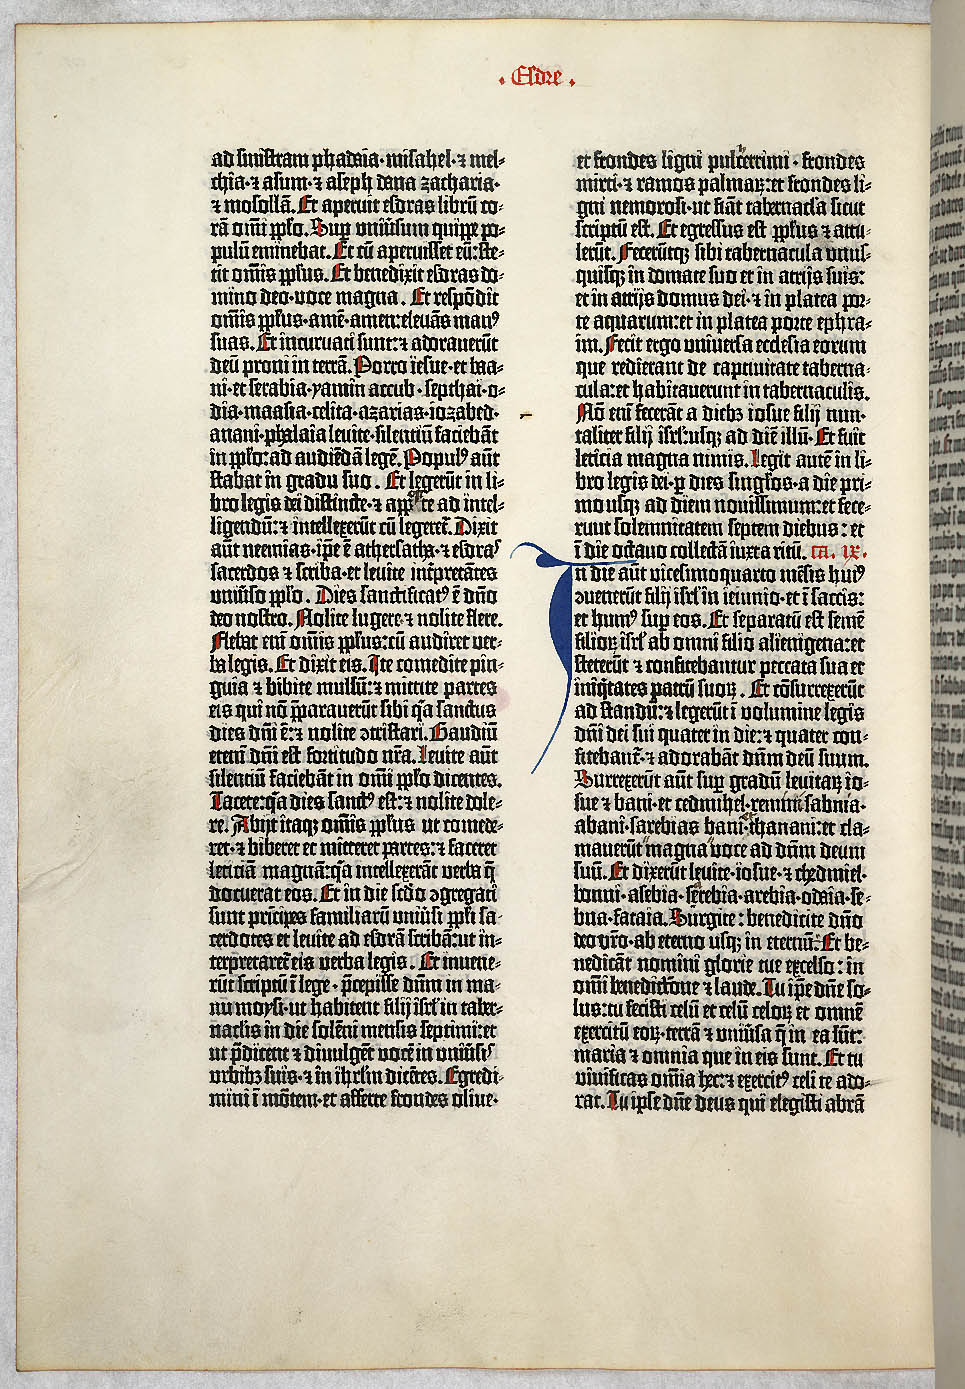 · Esdre ·
ad sinistram phadaia· misahel· ⁊ mel-
chia· ⁊ asum· ⁊ aseph dana zacharia·
⁊ mosollā. Et aperuit esdras librū co-
rā om̄i pp̄lo. Sup̱ vniūsum quippe po-
pulū eminebat. Et cū aperuisset eū: ste-
tit om̄is pp̄lus. Et benedixit esdras do-
mino deo· voce magna. Et respōdit
om̄is pp̄lus· amē· amen: eleuās manꝰ
suas. Et incuruati sunt: ⁊ adorauerūt
deū proni in terrā. Porro iesue· et baa-
ni· et serabia· yamin accub· septhai· o-
dia· maasia· celita· azarias· iozabed·
anani· phalaia leuite· silentiū faciebāt
in pp̄lo: ad audiēdā legē. Populꝰ aūt
stabat in gradu suo. Et legerūt in li-
bro legis dei distincte· ⁊ apꝑte ad intel-
ligendū: ⁊ intellexerūt cū legeret̄. Dixit
aūt neemias· ip̄e ē athersatha· ⁊ esdraˢ
sacerdos ⁊ scriba· et leuite int̄pretātes
vniūso pp̄lo. Dies sanctificatꝰ ē dn̄o
deo nostro. Nolite lugere· ⁊ nolite flere.
Flebat eni̅ om̄is pp̄lus: cū audiret ver-
ba legis. Et dixit eis. Ite comedite pin-
guia ⁊ bibite mulsū: ⁊ mittite partes
eis qui nō p̄pararauerūt sibi q̄a sanctus
dies dn̄i ē: ⁊ nolite ꝯtristari. Gaudiū
eteni̅ dn̄i est fortitudo nr̄a. Leuite aūt
silentiū faciebāt in om̄i pp̄lo dicentes.
Tacete: q̄a dies sanctꝰ est: ⁊ nolite dole-
re. Abijt itaqꝫ om̄is pp̄lus ut comede-
ret· ⁊ biberet et mitteret partes: ⁊ faceret
leticiā magnā: q̄a intellexerāt verba q̄
docuerat eos. Et in die scd̄o ꝯgregati
sunt prīcipes familiarū vniūsi pp̄li sa-
cerdotes et leuite ad esdrā scribā: ut in-
terpretaret̄ eis verba legis. Et inuene-
rūt scriptū ī lege· p̄cepisse dn̄m in ma-
nū moysi· ut habitent filij isr̄l in taber-
naclis in die solēni mensis septimi: et
ut p̄dicent ⁊ diuulgēt vocē in vniūsiˢ
vrbibꝫ suis· ⁊ in ihrl̄m dicētes. Egredi-
mini ī mōtem· et afferte frondes oliue·
et frondes ligni pulcerrimi· frondes
mirti· ⁊ ramos palmaꝝ: et frondes li-
gni nemorosi· ut fiāt tabernacl̄a sicut
scriptū est. Et egressus est pp̄lus ⁊ attu-
lerūt. Feceruntqꝫ sibi tabernacula vnus-
quisqꝫ in domate suo et in atrijs suis:
et in atrijs domus dei· ⁊ in platea por-
te aquarum: et in platea porte ephra-
im. Fecit ergo vniuersa ecclesia eorum
que redierant de captiuitate taberna-
cula: et habitauerunt in tabernaculis.
Nō eni̅ fecerāt a diebꝫ iosue filij nun·
taliter filij isr̄l: usqꝫ ad diē illū· Et fuit
leticia magna nimis. Legit autē in li-
bro legis dei· ꝑ dies singl̄os· a die pri-
mo usqꝫ ad diem nouissimum: et fece-
runt solemnitatem septem diebus: et
ī die octauo collectā iuxta ritū. ca. ix.
In die aūt vicesimoquarto mēsis huiꝰ
ꝯuenerūt filij isr̄l in ieiunio· et ī saccis:
et humꝰ sup̱ eos. Et separatū est semē
filioꝝ isr̄l ab omni filio alienigena: et
steterūt ⁊ confitebantur peccata sua et
iniq̄tates patrū suoꝝ. Et cōsurrexerūt
ad standū: ⁊ legerūt ī volumine legis
dn̄i dei sui quater in die: ⁊ quater con-
fitebant̄· ⁊ adorabāt dn̄m deū suum.
Surrexerūt aūt sup̱ gradū leuitaꝝ io-
sue ⁊ bani· et cedmihel· remini sabnia·
abani· sarebias bani· thanani: et cla-
mauerūt magna voce ad dn̄m deum
suū. Et dixerūt leuite· iosue· ⁊ chedmiel·
bonni· asebia· serebia· arebia· odaia· se-
bna· fataia. Surgite: benedicite dn̄o
deo vr̄o· ab eterno usqꝫ in eternū: Et be-
nedicāt nomini glorie tue excelso: in
om̄i benedictōne ⁊ laude. Tu ip̄e dn̄e so-
lus: tu fecisti celū et celū celoꝝ et omnē
exercitū eoꝝ· terrā ⁊ vniūsa q̄ in ea sūt:
maria ⁊ omnia que in eis sunt. Et tu
viuificas om̄ia hec: ⁊ exercitꝰ celi te ado-
rat. Tu ipse dn̄e deus qui elegisti abrā